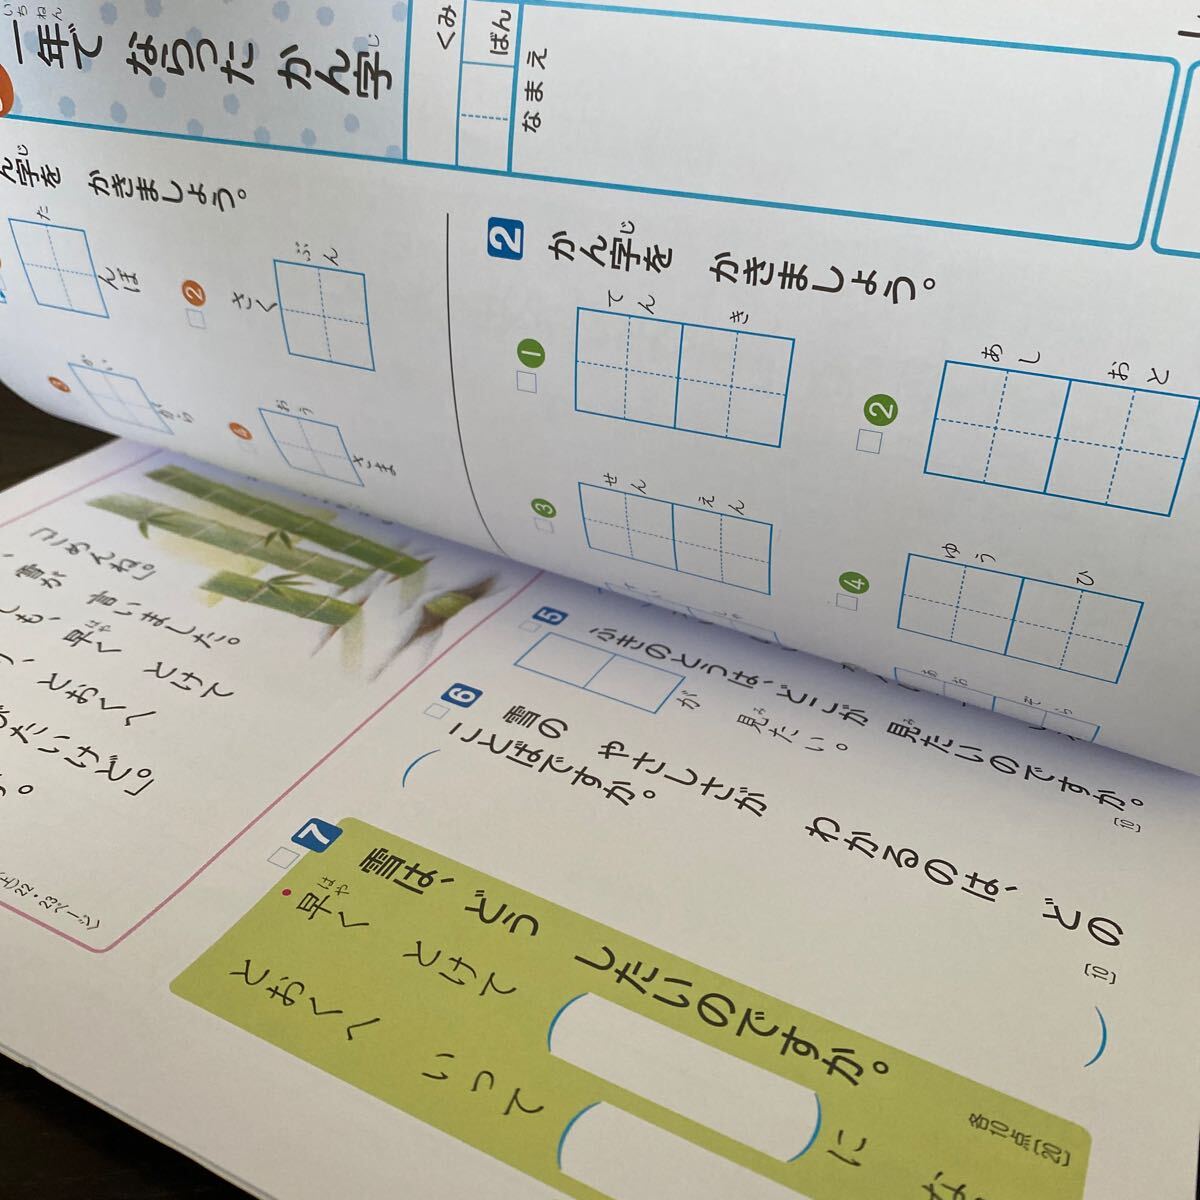 一年で ならった かん字
いち ねん
じ
くみ
ばん
なまえ
ん字を かきましょう。
じ
た
んぼ
2
さく
ぶん
3
かい
がら
4
おう
さま
2
かん字を かきましょう。
じ
1
てん
き
2
あし
おと
3
せん
えん
4
ゆう
ひ
あお
そら
「ごめんね。」
雪が 言いました。
も、早く とけて
はや
、とおくへ
たいけど。」
す。
22・23ページ
5
ふきのとうは、どこが 見たいのですか。
[10]
が 見たい。
み
6
雪の やさしさが わかるのは、どの
ことばですか。
[10]
7
雪は、どう したいのですか。
各10点[20]
早く とけて
はや
に
とおくへ いって
な